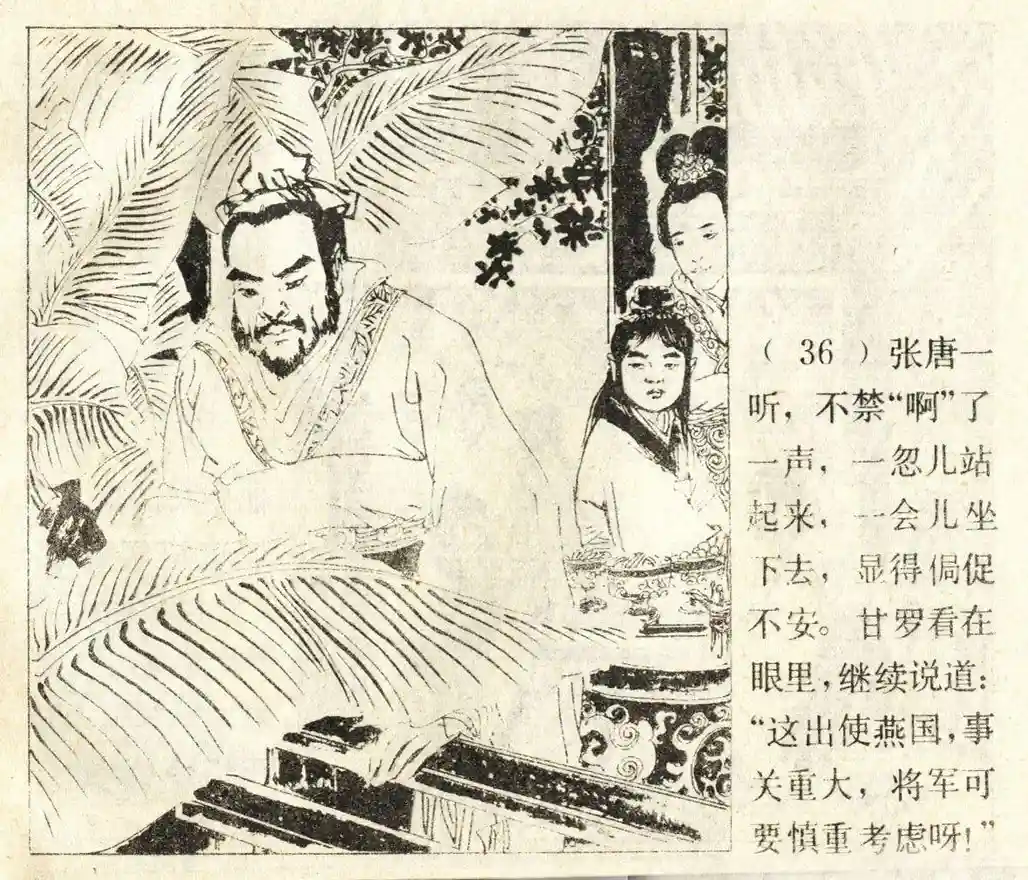 （36）张唐一
听，不禁“啊”了
一声，一忽儿站
起来，一会儿坐
下去，显得侷促
不安。甘罗看在
眼里，继续说道：
“这出使燕国，事
关重大，将军可
要慎重考虑呀！”